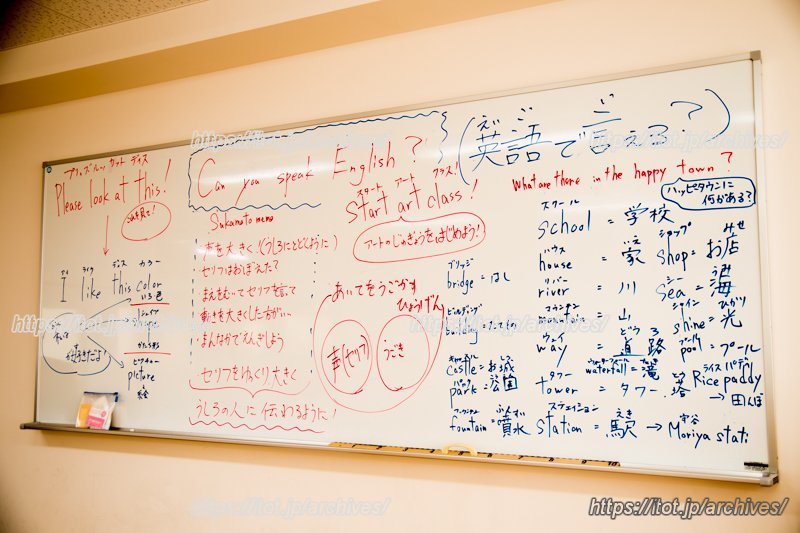 プリーズ ルック カット ディス
Please look at this!
これを見て!
アイ ライク ディス カラー
I like this color
いろ 色
シェイプ
shape
かたち 形
ピクチャー
picture
Can you speak English?
Sukamoto memo
声を大きく!(うしろにとどくように)
セリフはおぼえた?
まえをむいてセリフを言って
動きを大きくした方がいい
まんなかでえんぎしよう
セリフをゆっくり、大きく
うしろの人に伝わるように!
スタート アート クラス!
start art class!
アートのじゅぎょうをはじめよう!
あいてをうごかす
ひょうげん
声(セリフ)
うごき
(英語で言える?)
えい ご
What are there in the happy town?
ハッピタウンに
何がある?
スクール
school = 学校
ハウス いえ
house = 家
ショップ みせ
shop = お店
リバー
river = 川
シー うみ
sea = 海
マウンテン
mountain = 山
シャイン ひかり
shine = 光
ウェイ どうろ
way = 道路
プール
pool = プール
ブリッジ
bridge = はし
ビルディング
building = たてもの
キャッスル
castle = お城
ウォーターフォール たき
waterfall = 滝
パーク
park = 公園
タワー
tower = タワー 塔
ライス パディ
Rice paddy
→ 田んぼ
ファウンテン ふんすい
fountain = 噴水
ステェイション えき
station = 駅
守谷
→ Moriya stati
https://itot.jp/archives/
https://itot.jp/archives/
https://itot.jp/archives/
https://itot.jp/archives/
https://itot.jp/archives/
https://itot.jp/archives/